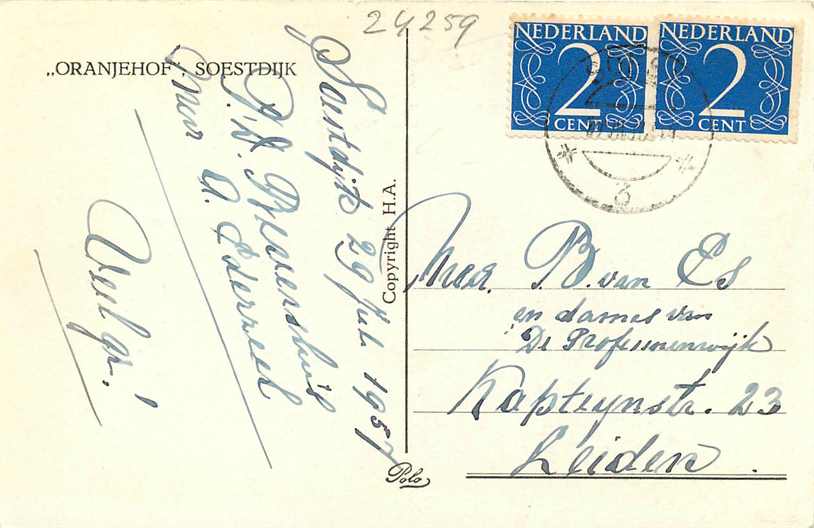 24259
„ORANJEHOF" SOESTDIJK
NEDERLAND
2
CENT
NEDERLAND
2
CENT
6
Soestdijk 29 Juli 1957
Mevr A.
Veel gr.!
Copyright H.A.
Polo
Mevr. B. van Es
en dames van
De Professorenwijk
Kapteynstr. 23
Leiden.